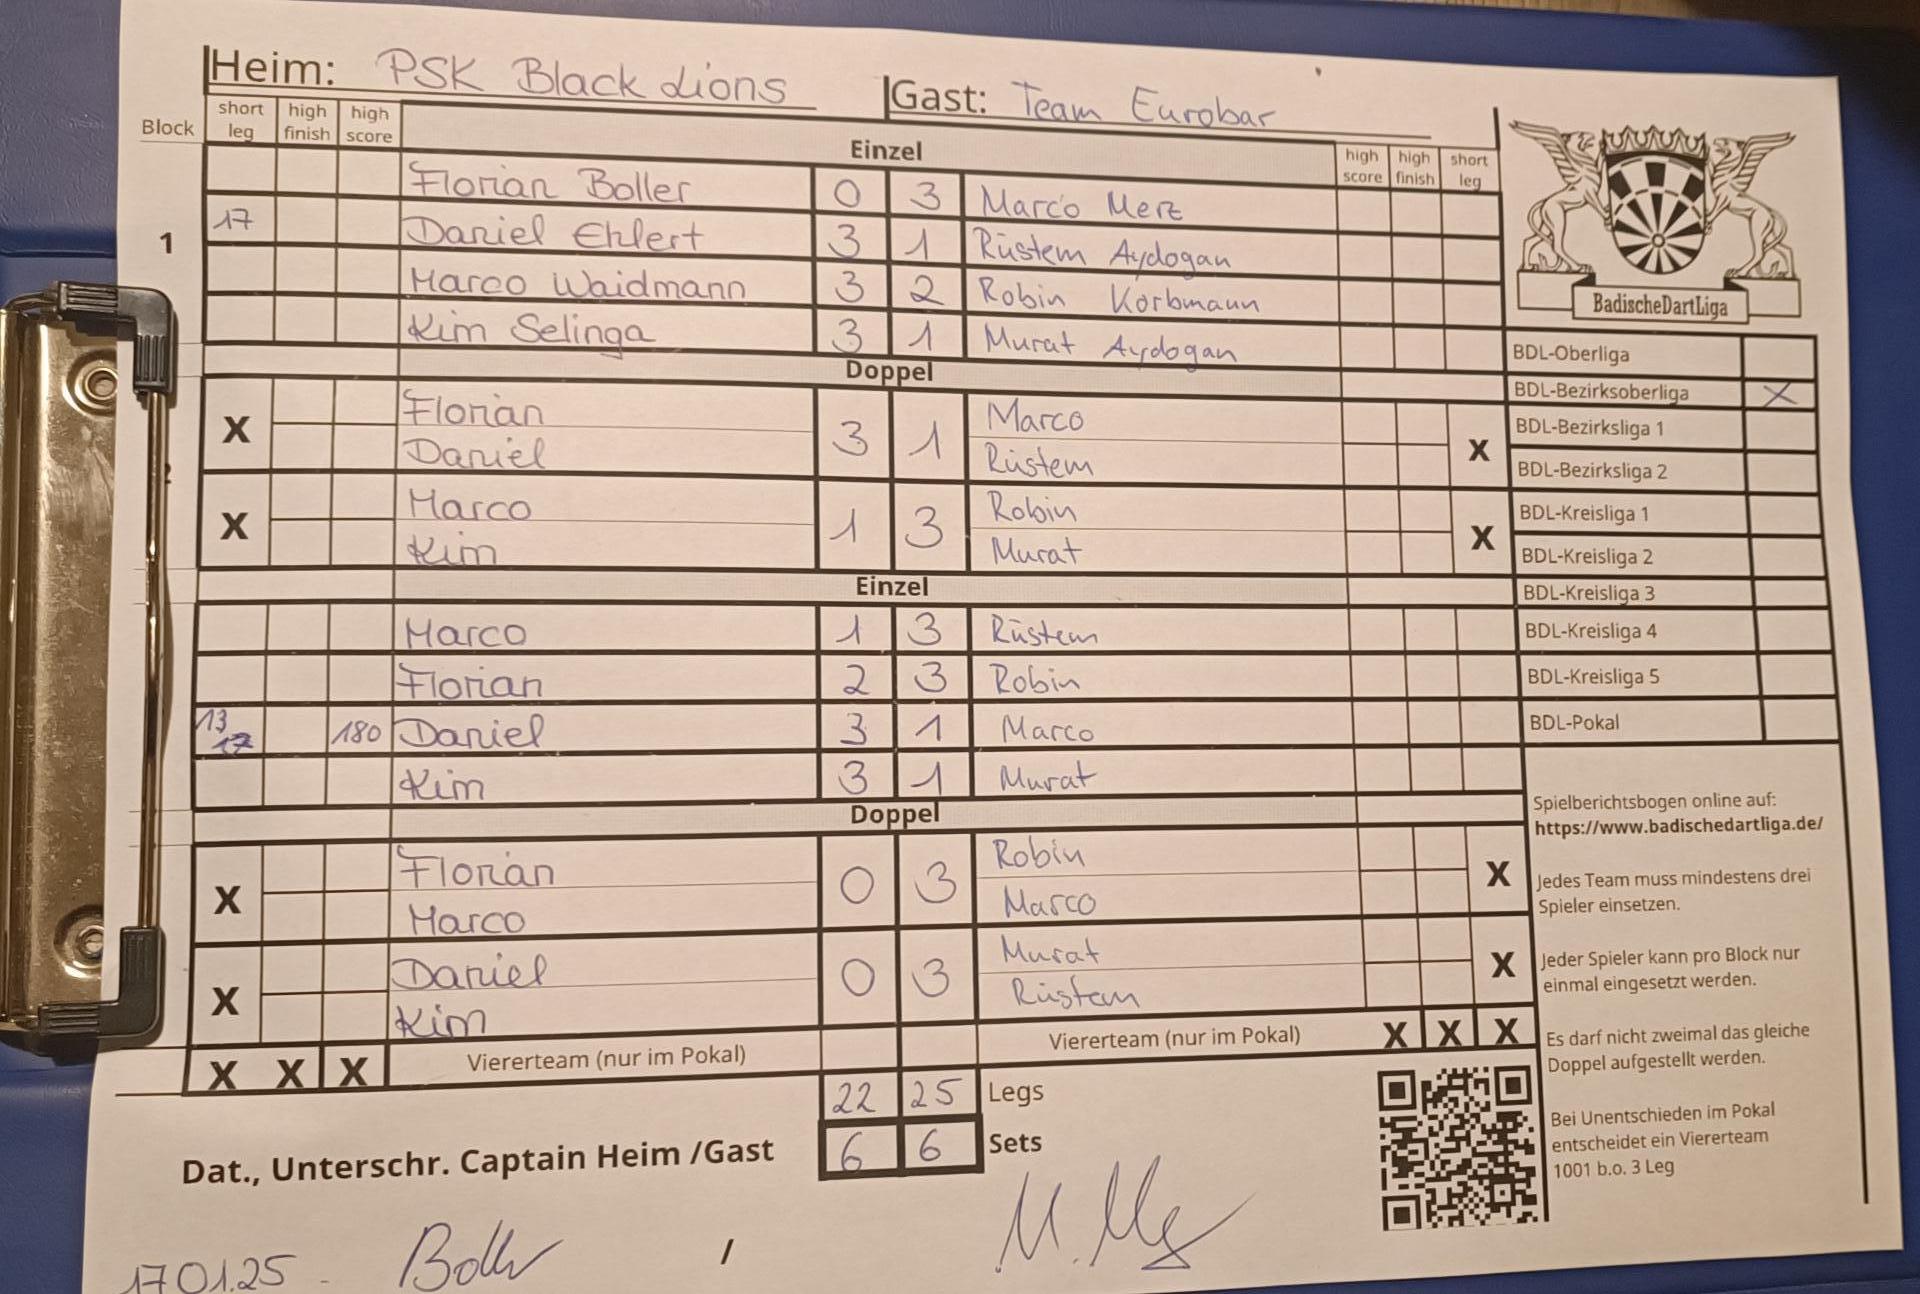 Heim: PSK Black Lions Gast: Team Eurobar
Block short leg high finish high score Einzel high score high finish short leg
1
Florian Boller 0 3 Marco Merz
17 Daniel Ehlert 3 1 Rüstem Aydogan
Marco Waidmann 3 2 Robin Korbmann
Kim Selinga 3 1 Murat Aydogan
Doppel
X Florian 3 1 Marco X
Daniel Rüstem
X Marco 1 3 Robin X
Kim Murat
Einzel
Marco 1 3 Rüstem
Florian 2 3 Robin
13 17 180 Daniel 3 1 Marco
Kim 3 1 Murat
Doppel
X Florian 0 3 Robin X
Marco Marco
X Daniel 0 3 Murat X
Kim Rüstem
X X X Viererteam (nur im Pokal) Viererteam (nur im Pokal) X X X
22 25 Legs
6 6 Sets
Dat., Unterschr. Captain Heim /Gast
17.01.25 Boller /
BadischeDartLiga
BDL-Oberliga
BDL-Bezirksoberliga X
BDL-Bezirksliga 1
BDL-Bezirksliga 2
BDL-Kreisliga 1
BDL-Kreisliga 2
BDL-Kreisliga 3
BDL-Kreisliga 4
BDL-Kreisliga 5
BDL-Pokal
Spielberichtsbogen online auf:
https://www.badischedartliga.de/
Jedes Team muss mindestens drei
Spieler einsetzen.
Jeder Spieler kann pro Block nur
einmal eingesetzt werden.
Es darf nicht zweimal das gleiche
Doppel aufgestellt werden.
Bei Unentschieden im Pokal
entscheidet ein Viererteam
1001 b.o. 3 Leg